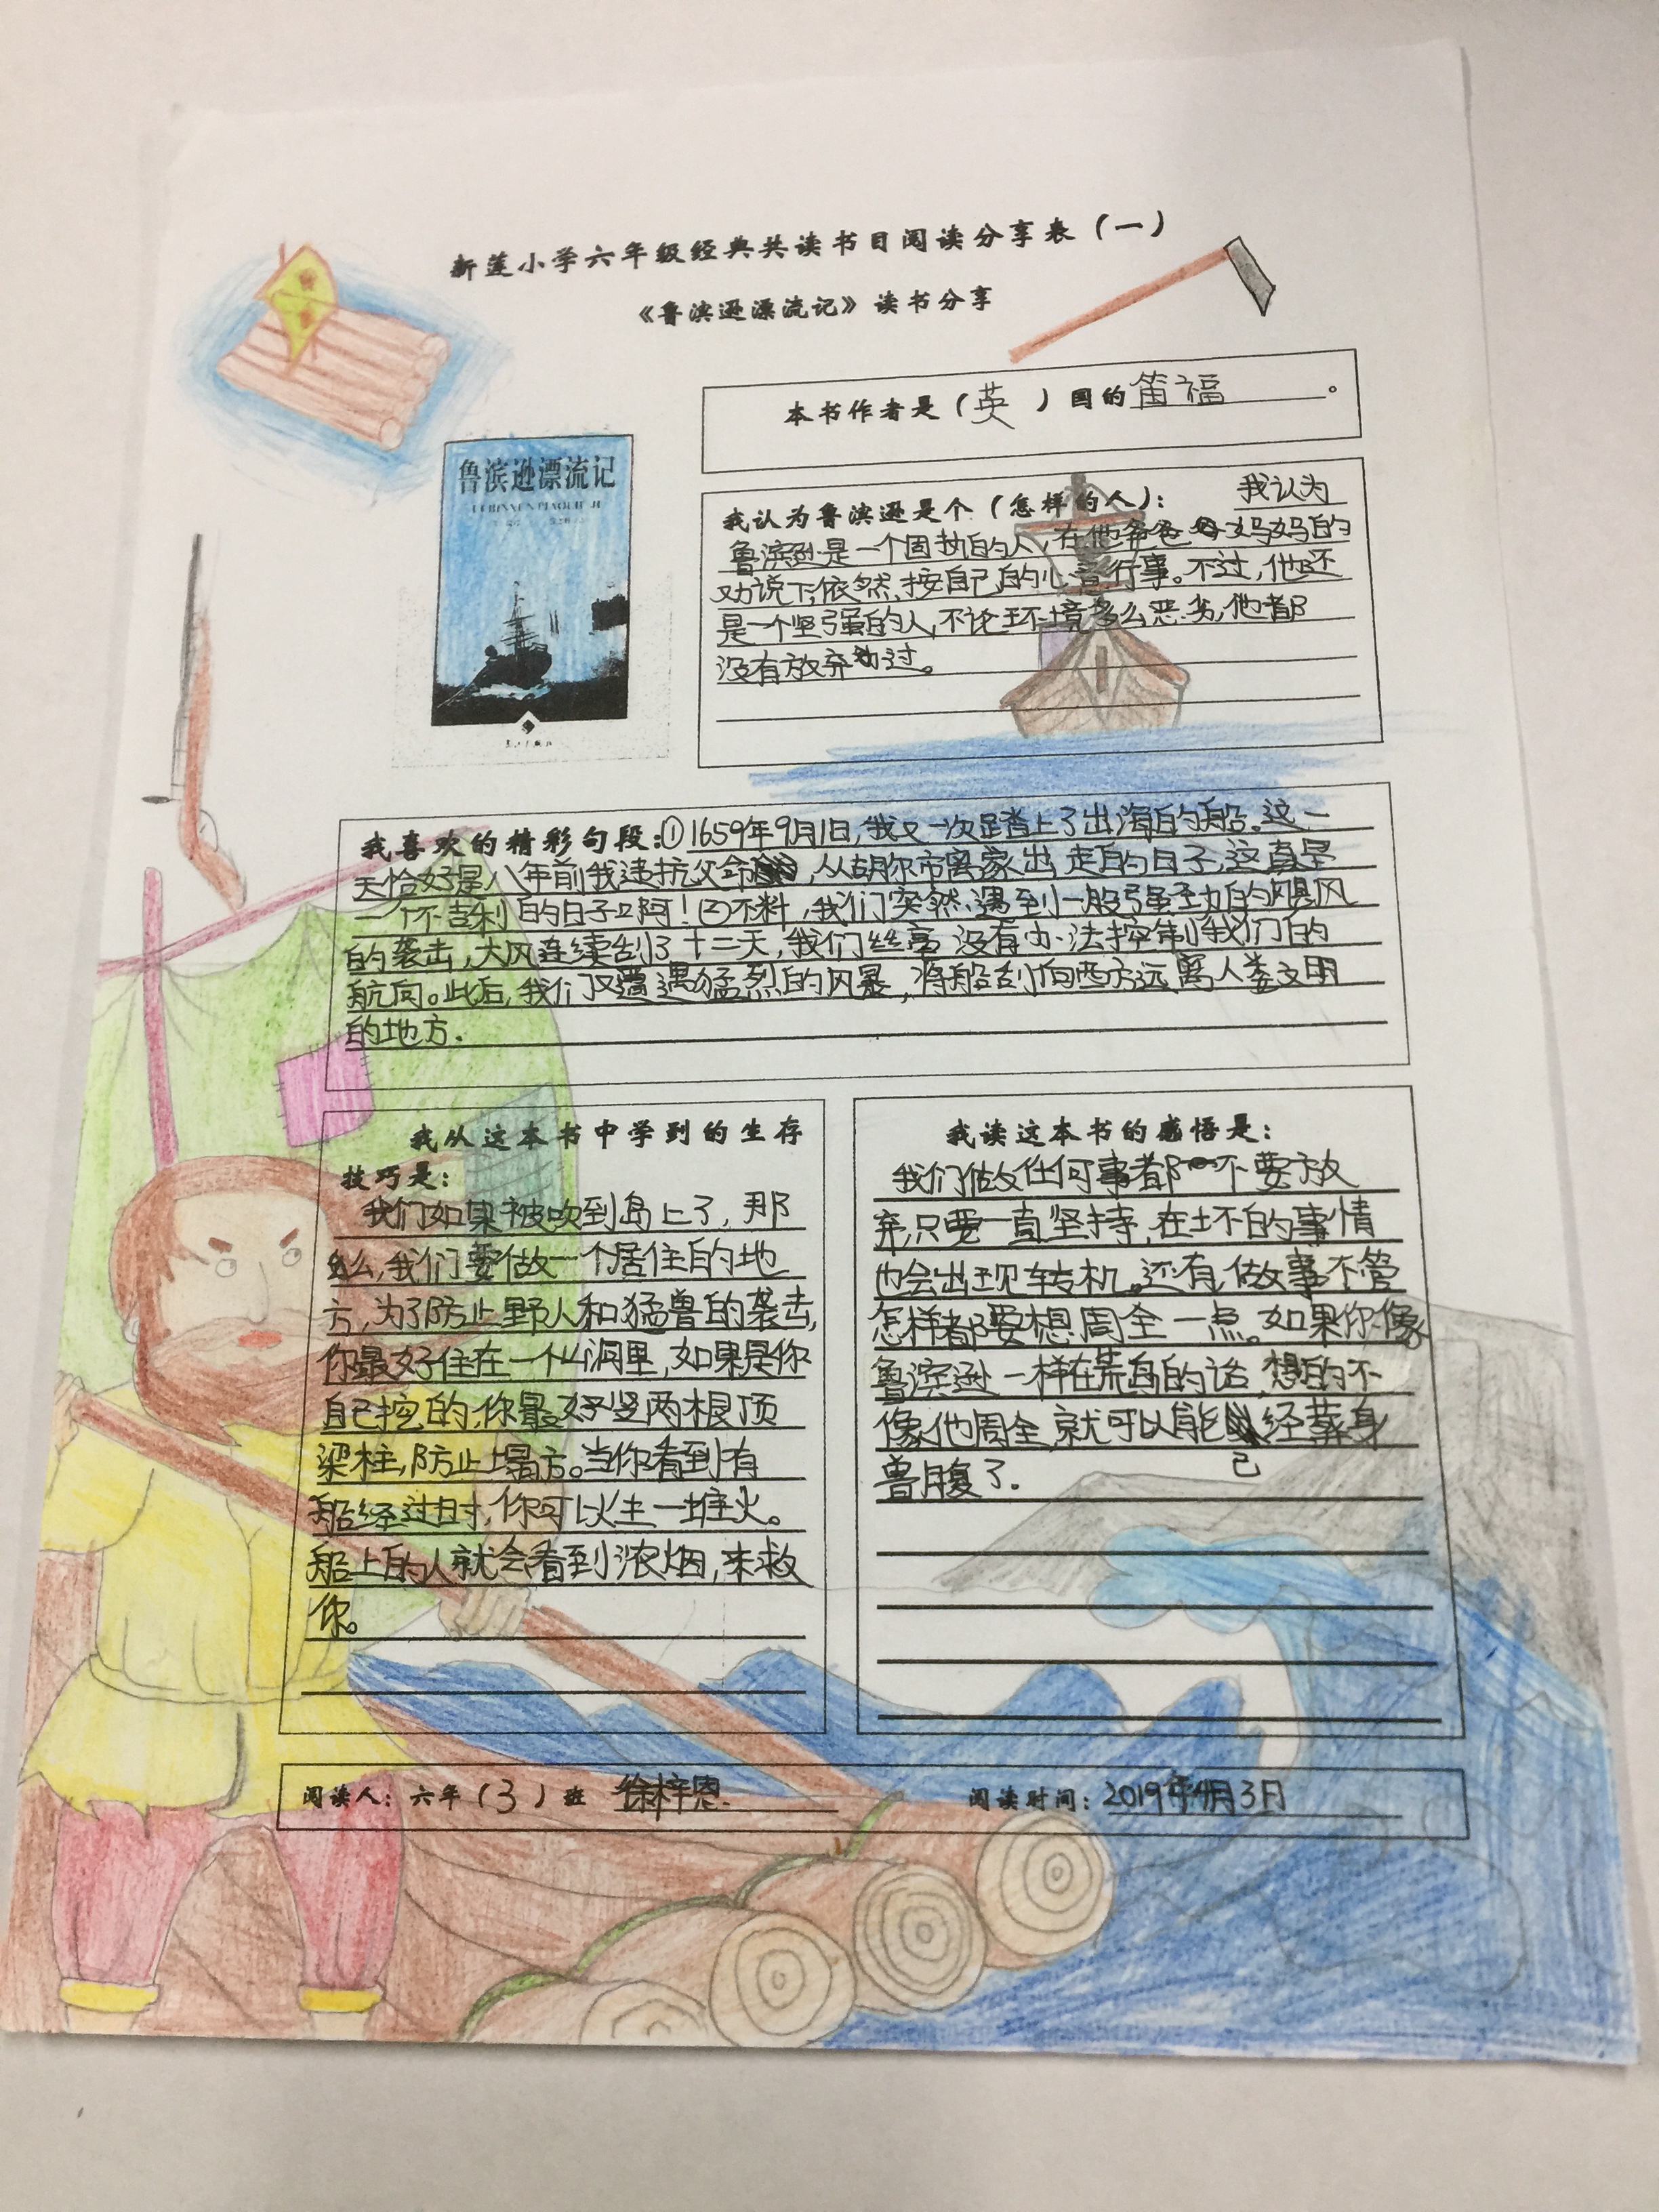 新莲小学六年级经典共读书目阅读分享表（一）
《鲁滨逊漂流记》读书分享
本书作者是（英）国的笛福。
鲁滨逊漂流记
我认为鲁滨逊是个（怎样的人）：我认为
鲁滨逊是一个固执的人，在他爸爸妈妈的
劝说下依然按自己的心意行事。不过，他还
是一个坚强的人，不论环境多么恶劣，他都
没有放弃过。
我喜欢的精彩句段：①1659年9月1日，我又一次踏上了出海的船。这一
天恰好是八年前我违抗父命，从胡尔市离家出走的日子，这真是
一个不吉利的日子啊！②不料，我们突然遇到一股强劲的飓风
的袭击，大风连续刮了十二天，我们丝毫没有办法控制我们的
航向。此后，我们又遭遇猛烈的风暴，将船刮向西方远离人类文明
的地方.
我从这本书中学到的生存
技巧是：
我们如果被吹到岛上了，那
么，我们要做一个居住的地
方，为了防止野人和猛兽的袭击，
你最好住在一个山洞里，如果是你
自己挖的，你最好竖两根顶
梁柱，防止塌方。当你看到有
船经过时，你可以生一堆火。
船上的人就会看到浓烟，来救
你。
我读这本书的感悟是：
我们做任何事都不要放
弃，只要一直坚持，在坏的事情
也会出现转机。还有，做事不管
怎样都要想周全一点。如果你像
鲁滨逊一样在荒岛的话，想的不
像他周全，就可以能已经葬身
兽腹了.
阅读人：六年（3）班 徐梓恩. 阅读时间：2019年4月3日